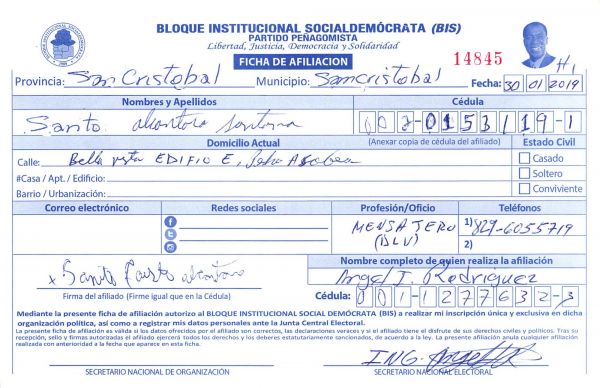 BLOQUE INSTITUCIONAL SOCIALDEMÓCRATA (BIS)
PARTIDO PEÑAGOMISTA
Libertad, Justicia, Democracia y Solidaridad
FICHA DE AFILIACION
14845
H1
Provincia: San Cristobal Municipio: San Cristobal Fecha: 30 01 2019
Nombres y Apellidos Cédula
Santo alcantara santana 002-0153119-1
Domicilio Actual (Anexar copia de cédula del afiliado) Estado Civil
Calle: Bella vista EDIFIO E, Casado
#Casa / Apt. / Edificio: Soltero
Barrio / Urbanización: Conviviente
Correo electrónico Redes sociales Profesión/Oficio Teléfonos
MENSAJERO 1) 829-6055719
2)
Nombre completo de quien realiza la afiliación
x Santo Fausto alcantara Angel T. Rodriguez
Firma del afiliado (Firme igual que en la Cédula) Cédula: 001-1277632-3
Mediante la presente ficha de afiliación autorizo al BLOQUE INSTITUCIONAL SOCIAL DEMÓCRATA (BIS) a realizar mi inscripción única y exclusiva en dicha
organización política, así como a registrar mis datos personales ante la Junta Central Electoral.
La presente ficha de afiliación es válida si los datos ofrecidos por el afiliado son correctos, las declaraciones veraces y si el afiliado tiene el disfrute de sus derechos civiles y políticos. Tras su
recepción, sello y firmas autorizadas el afiliado ejercerá todos los derechos y los deberes estatutariamente sancionados, de acuerdo a la ley. La presente afiliación anula cualquier afiliación
realizada con anterioridad a la fecha que aparece en esta ficha.
ING.
SECRETARIO NACIONAL DE ORGANIZACIÓN SECRETARIO NACIONAL ELECTORAL